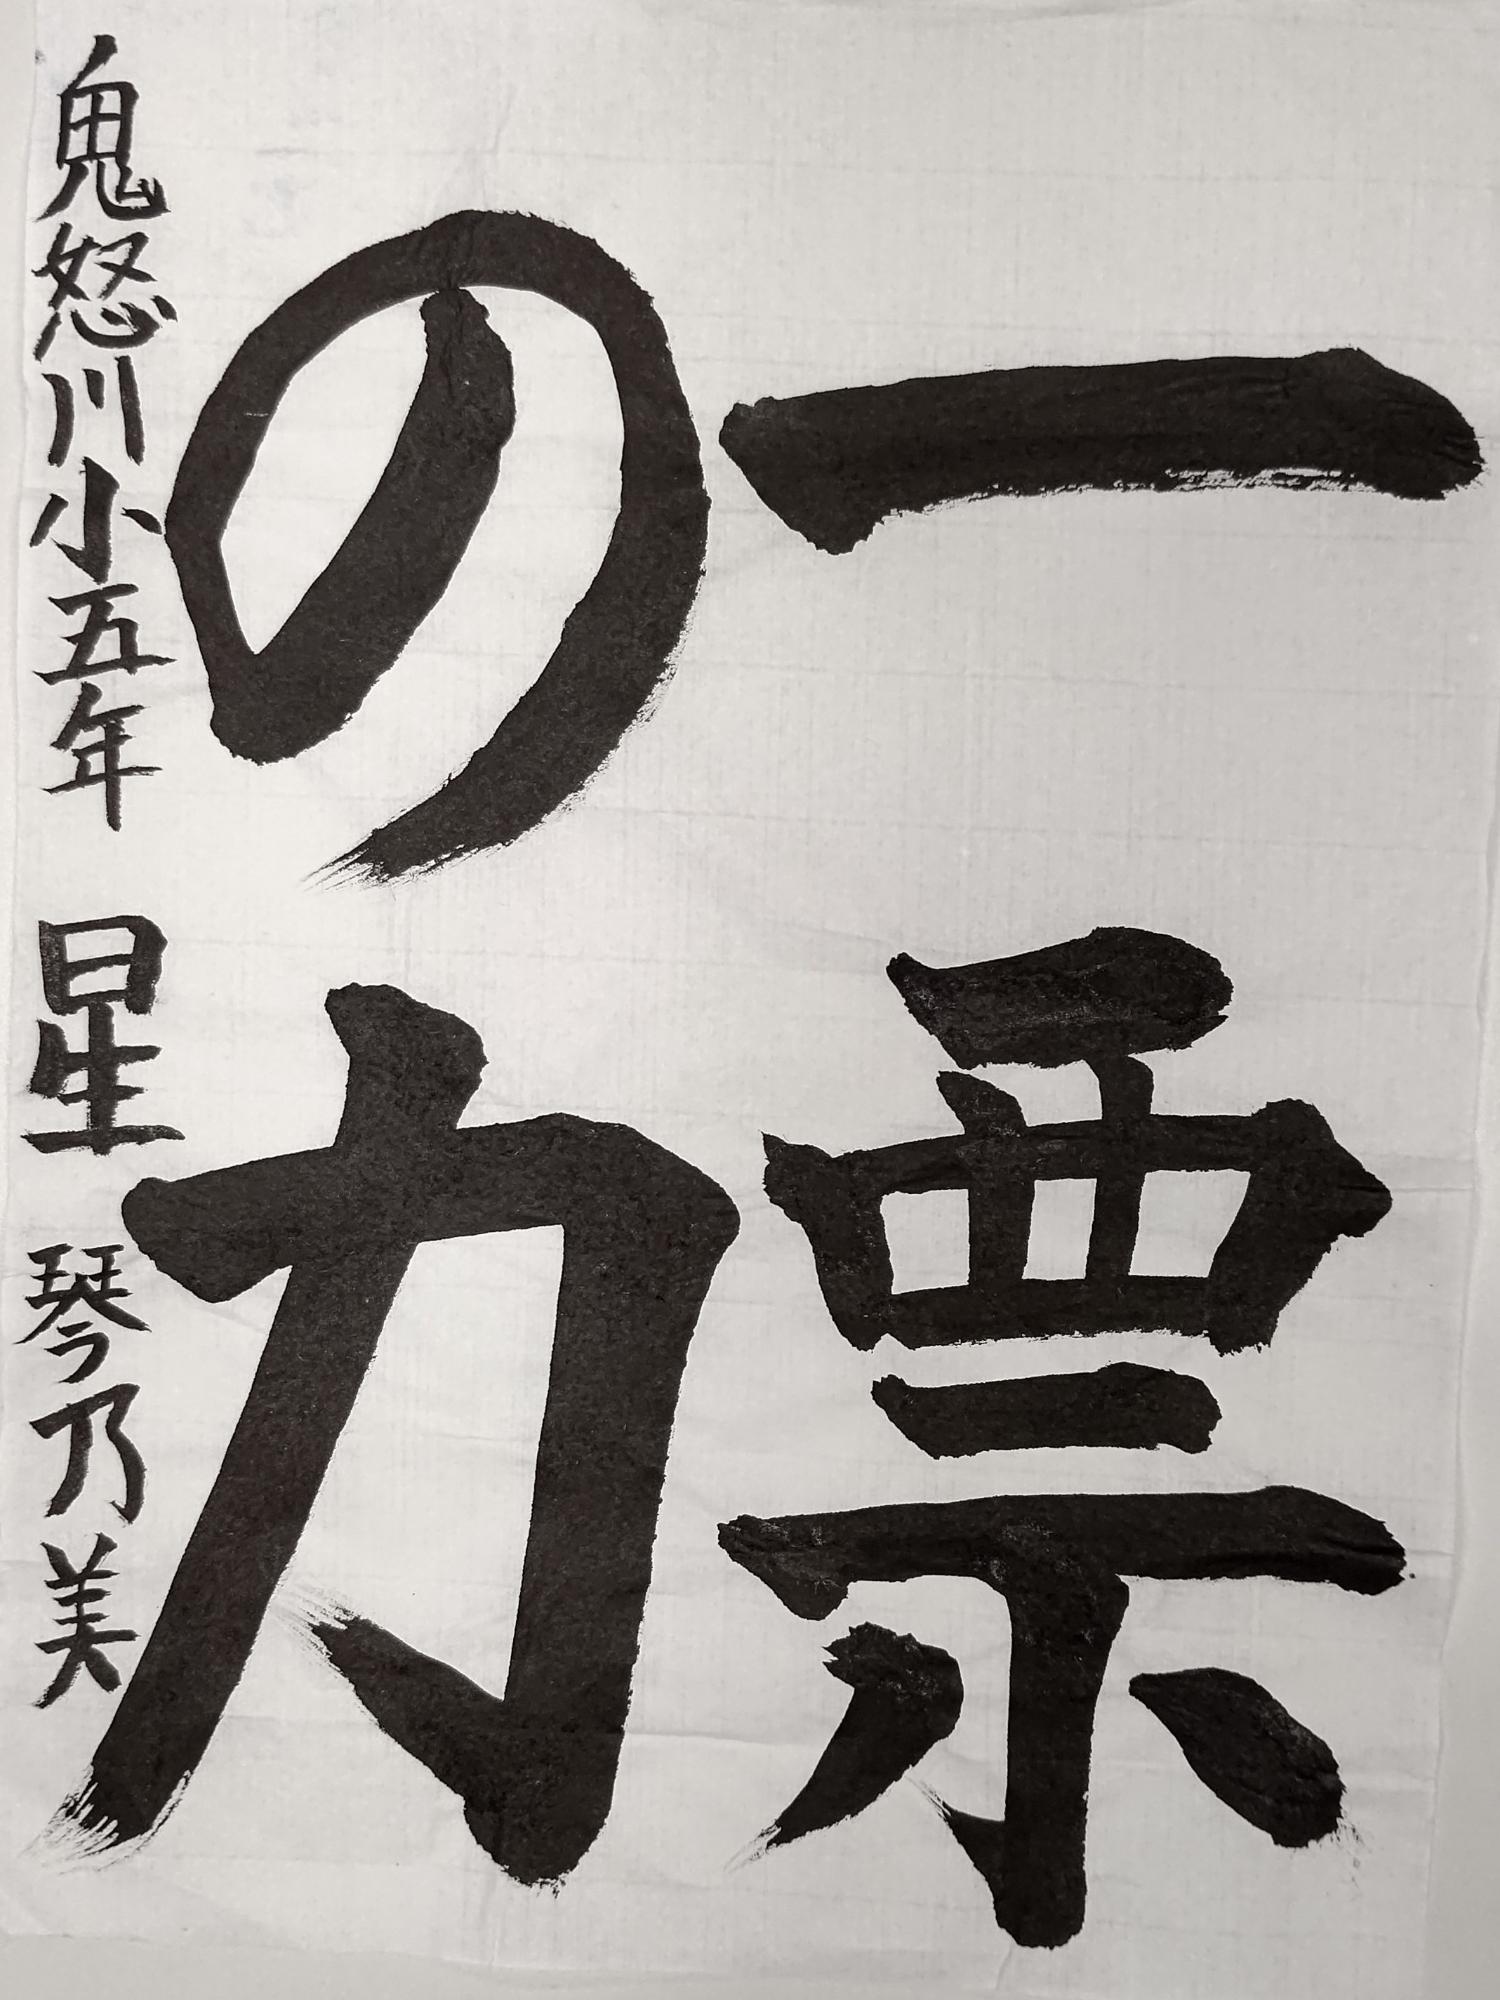 一票
の力
鬼怒川小五年 星 琴乃美